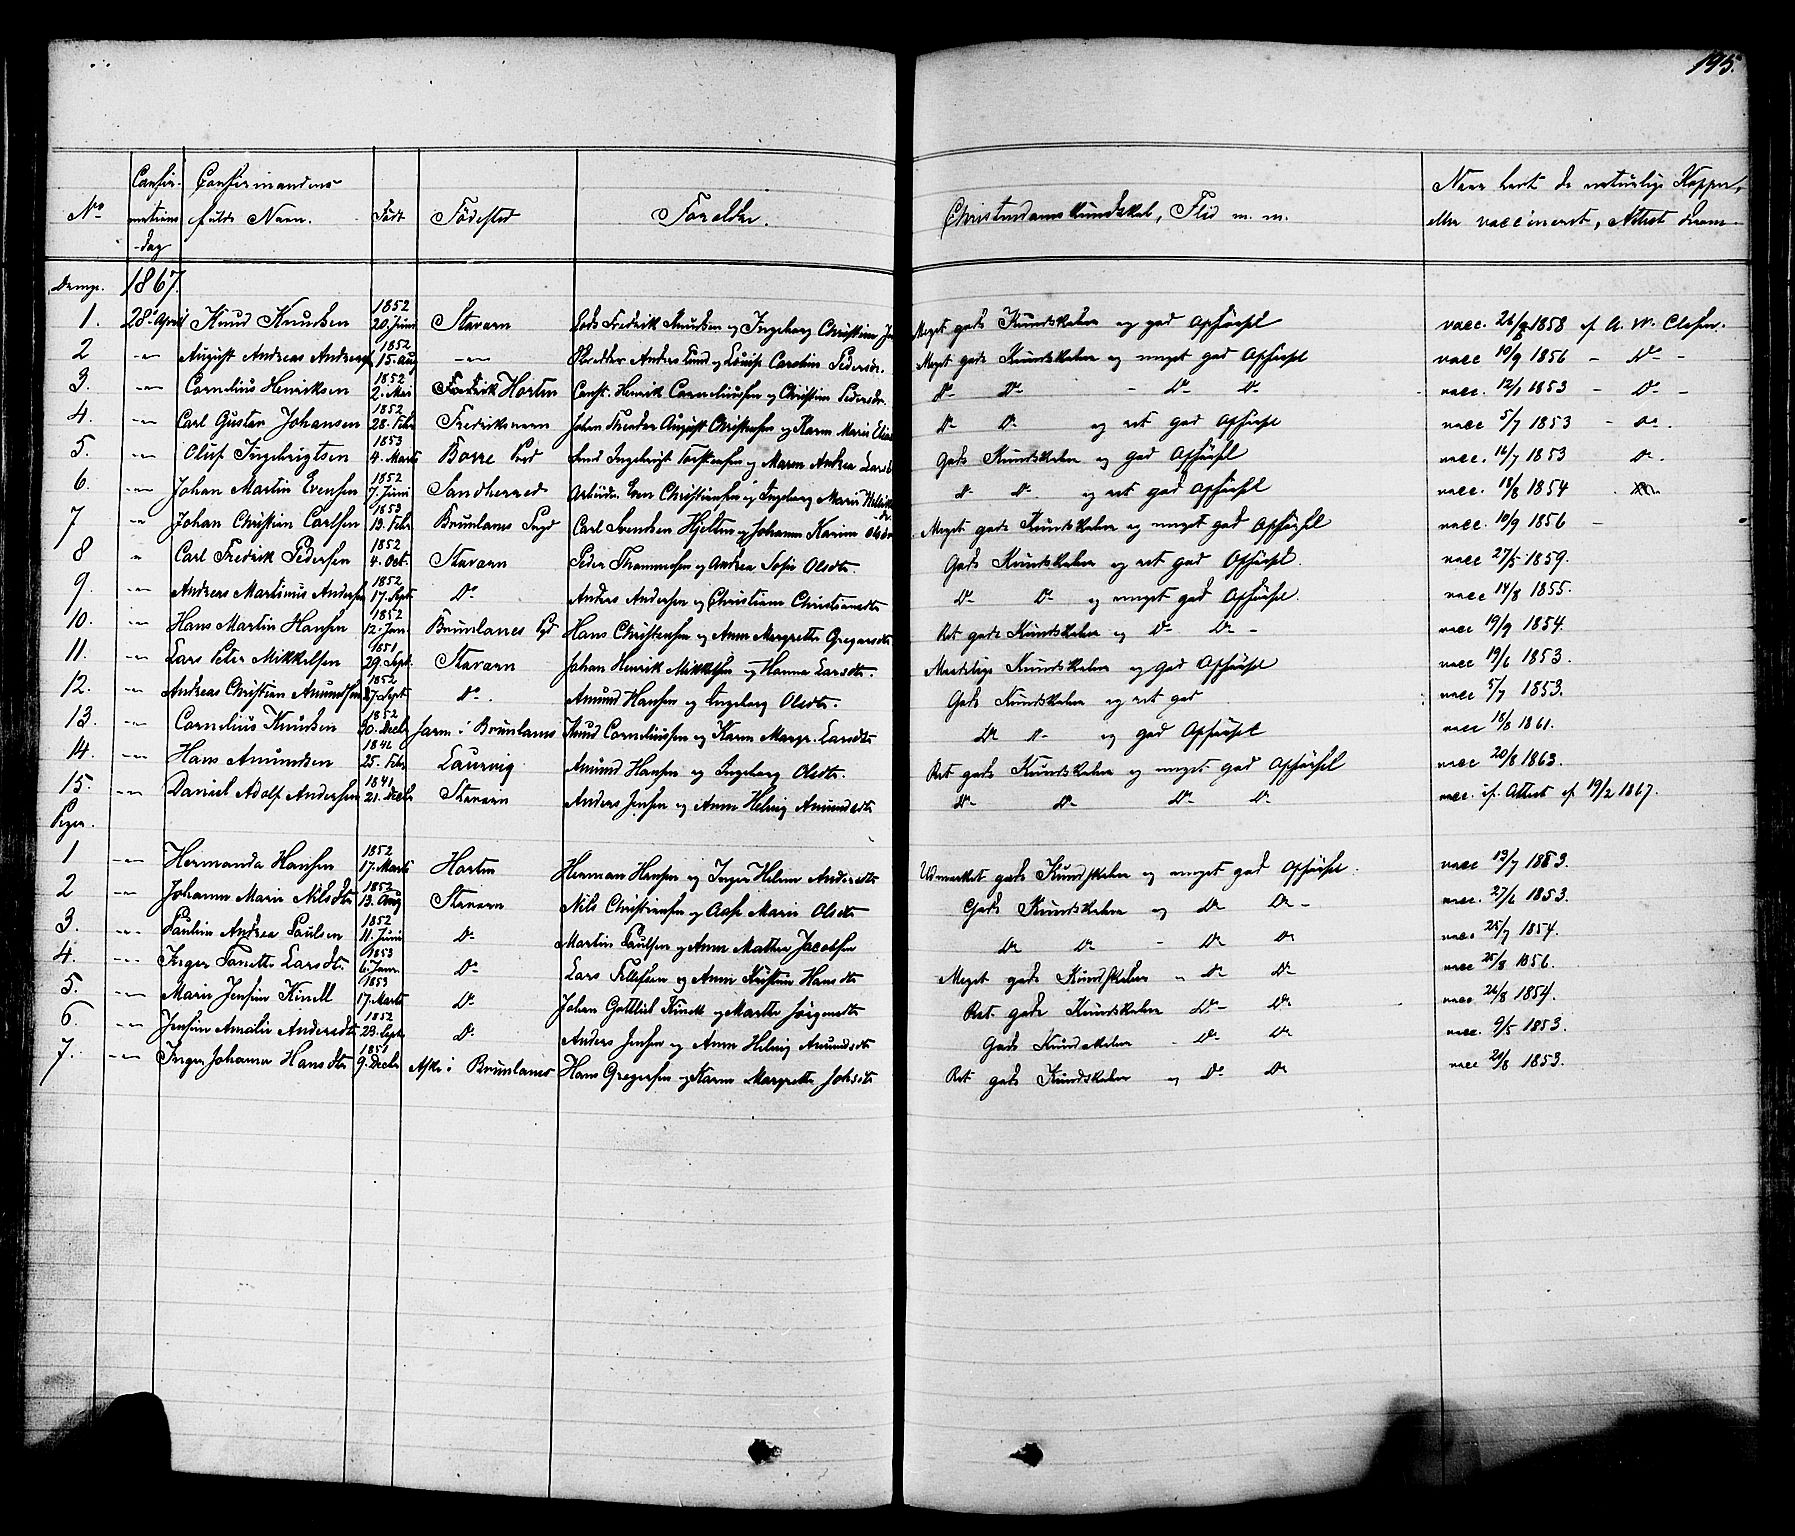 195.
No Confirmations-dag Confirmandens fulde Navn. Født Fødested Forældre. Christendomskundskab, Flid m. m. Naar havt de naturlige Kopper, eller vaccineret, Attest derom
Drenge. 1867.
1. 28. April Knud Knudsen 1852 20. Juni Stavern Lods Fredrik Knudsen og Ingeborg Christine Meget gode Kundskaber og god Opførsel vacc. 26/8 1858 af A. W. Clasen.
2 -"- August Andreas Andersen 1852 15. Aug -"- Anders Lund og Lovise Caroline Pedersdr. Meget gode Kundskaber og meget god Opførsel vacc 10/9 1856 - Do -
3. -"- Cornelius Henriksen 1852 2. Mai Fredrik Horten Const. Henrik Corneliussen og Christine Pedersdr. Do Do - Do Do vacc. 12/1 1853 - Do -
4. -"- Carl Gustav Johansen 1852 28. Febr Fredriksvern Johan Theodor August Christensen og Karen Marie Do Do og ret god Opførsel vacc 5/7 1853 - Do.
5. -"- Oluf Ingebrigtsen 1853 4. Marts Borre Ingebrigt Torstensen og Maren Andrea Larsd Gode Kundskaber og god Opførsel vacc. 16/7 1853 Do.
6. -"- Johan Martin Evensen 1852 7. Juni Sandherred Arbeider Even Christiansen og Ingeborg Marie Do Do og ret god Opførsel vacc. 18/8 1854
7 " Johan Christian Carlsen 1853 13. Febr Brunlanes Carl Svendsen Hjelten og Johanne Karine Meget gode Kundskaber og meget god Opførsel vacc. 10/9 1856 -
8 " Carl Fredrik Pedersen 1852 4. Oct. Stavern Peder Thommesen og Andrea Sofie Olsdtr. Gode Kundskaber og ret god Opførsel. vacc. 27/5 1859.
9. -"- Andreas Martinus Andersen 1852 17. Sept Do Anders Andersen og Christiane Christiansdtr Do Do og meget god Opførsel. vacc 14/8 1855.
10. -"- Hans Martin Hansen 1852 12. Jan. Brunlanes Hans Christensen og Anne Margrethe Gregersdtr Ret gode Kundskaber og Do Do - vacc 19/9 1854.
11. -"- Lars Peter Mikkelsen 1851 29. Sept. Stavern Johan Henrik Mikkelsen og Hanna Larsdtr. Maadelige Kundskaber og god Opførsel vacc 19/6 1853.
12. -"- Andreas Christian Amundsen 1852 27. Sept Do. Amund Hansen og Ingeborg Olsdtr. Gode Kundskaber og ret god vacc 5/7 1853.
13. -"- Cornelius Knudsen 1852 30. Decbr i Brunlanes Knud Corneliussen og Karen Margr. Larsdtr Do Do og god Opførsel vacc 18/8 1861.
14. -"- Hans Amundsen 25. Febr Laurvig Amund Hansen og Ingeborg Olsdtr. Ret gode Kundskaber og meget god Opførsel vacc 20/8 1863.
15. -"- Daniel Adolf Andersen 21. Decbr Stavern Anders Jensen og Anne Helvig Amundsdtr Do Do Do Do vacc. if. Attest af 19/2 1867.
Piger.
1 -"- Hermanda Hansen 1852 17. Marts Horten Herman Hansen og Inger Helene Andersdtr Udmærket gode Kundskaber og meget god Opførsel. vacc 13/7 1853.
2 -"- Johanne Marie Nilsdtr 1852 13. Aug Stavern Nils Christiansen og Aase Marie Olsdtr Gode Kundskaber og Do Do - vacc. 27/6 1853.
3. -"- Pauline Andrea Paulsen 1852 11. Juni Do Martin Paulsen og Anne Mathea Jacobsen Do Do - Do Do vacc 25/7 1854.
4. -"- Inger Tonette Larsdtr 1853 6. Janr. Do Lars Tellefsen og Anne Kirstine Hansdtr Meget gode Kundskaber " Do Do vacc 25/8 1856.
5. -"- Marie Jensine Kinell 1853 17. Marts Do. Johan Gottlieb Kinell og Marthe Jørgensdtr Ret gode Kundskaber Do - Do vacc. 26/8 1854.
6. -"- Jensine Amalie Andersdtr 1852 23. Septr Do. Anders Jensen og Anne Helvig Amundsdtr Gode Kundskaber - Do Do vacc. 9/5 1853.
7. -"- Inger Johanne Hansdtr 1851 9. Decbr Aske i Brunlanes Hans Gregersen og Karen Margrethe Johsdtr Ret gode Kundskaber og Do Do vacc 24/8 1853.